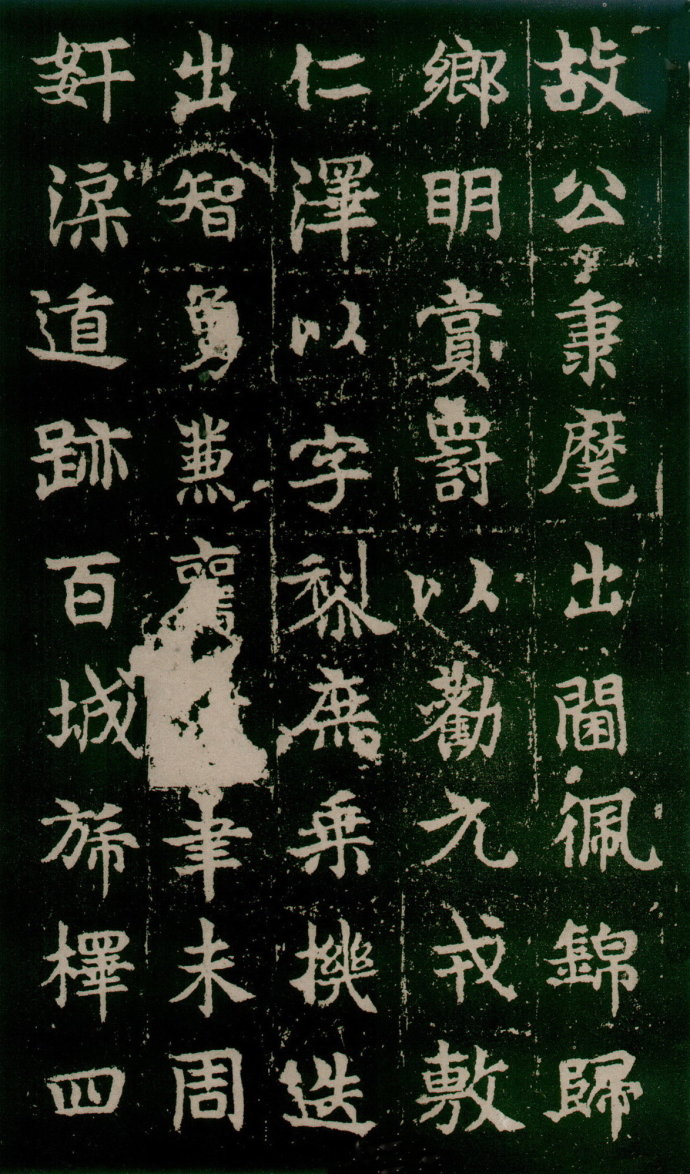 故公秉麾出閫佩錦歸
鄉明賞爵以勸元戎敷
仁澤以字黎庶乗機迭
出智勇兼車未周
奸深遁跡百城斾檡四